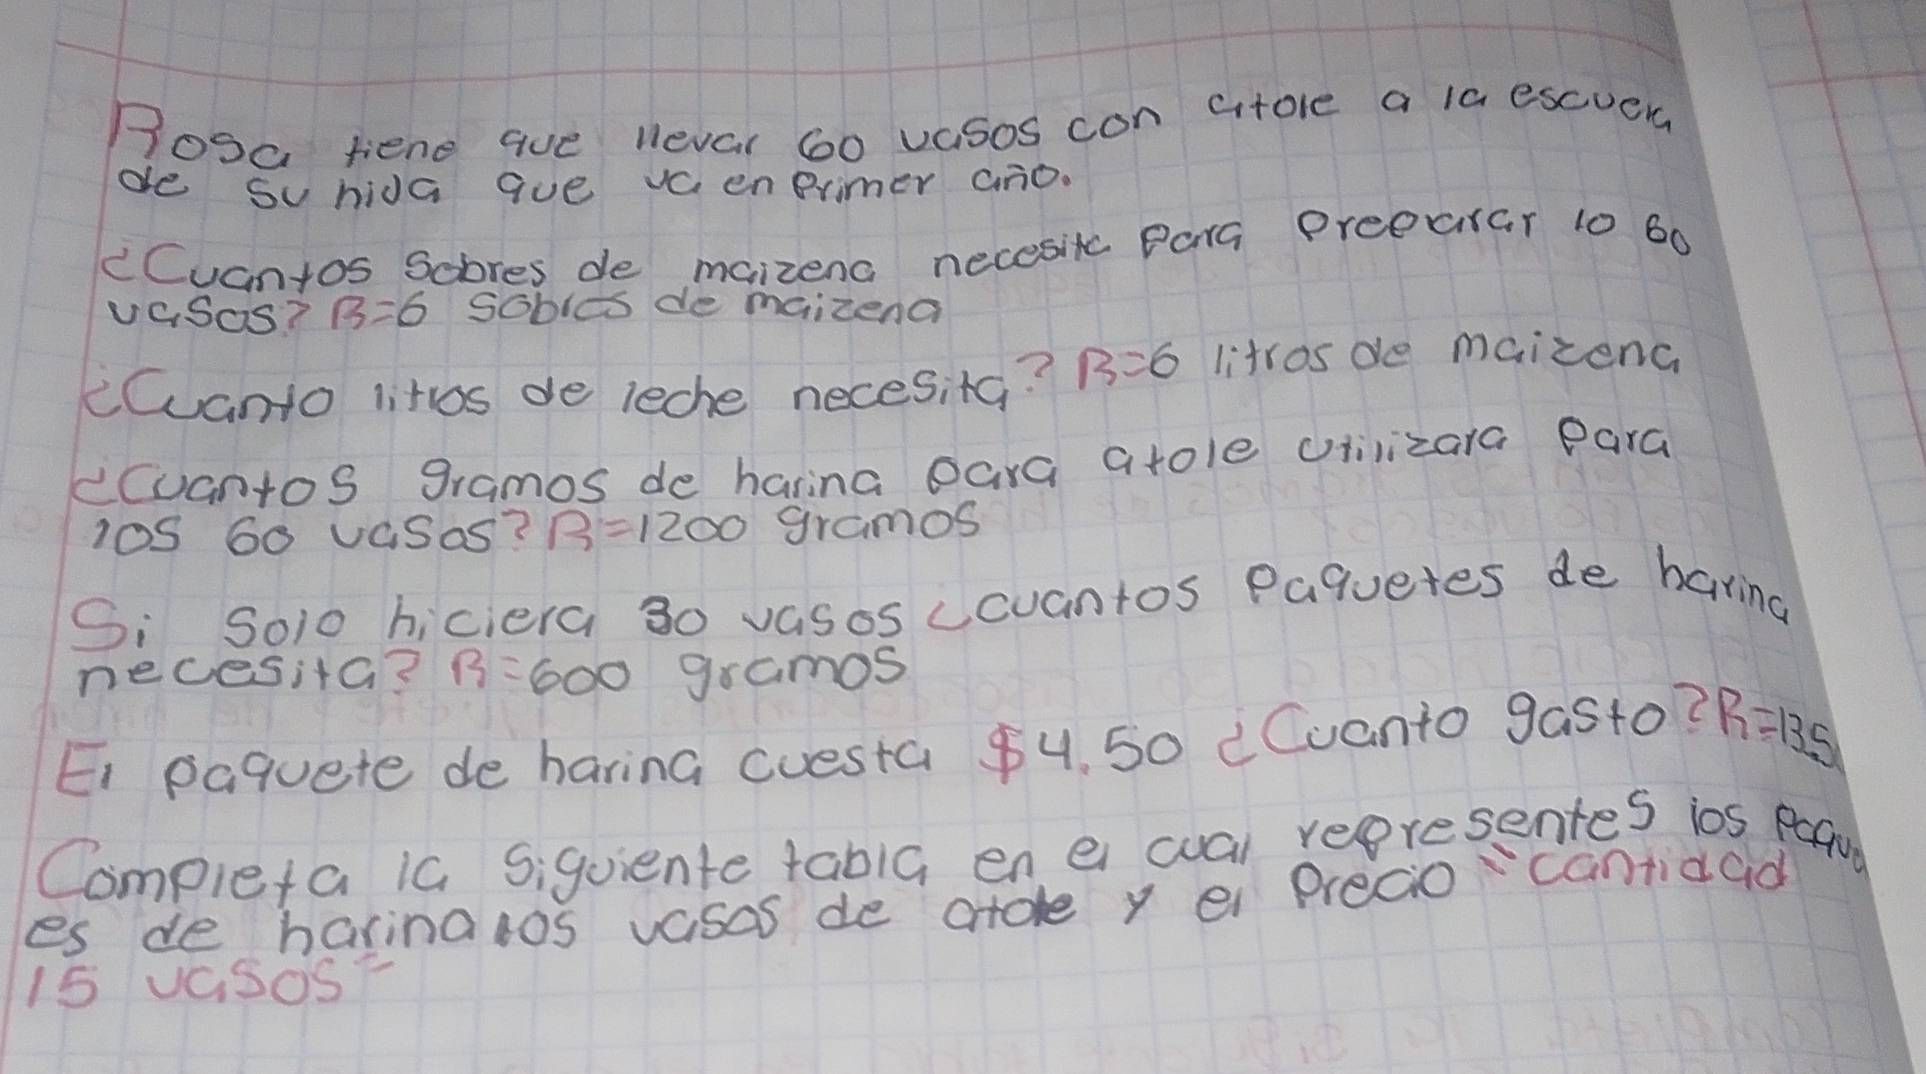 Rosa tiene que llevar 60 vasos con atole a la escuela
de su hija que va en primer año.
¿Cuantos sobres de maizena necesita para preparar lo 60
vasos? R=6 sobres de maizena
¿Cuanto litros de leche necesita? R=6 litros de maizena
¿Cuantos gramos de harina para atole utilizara para
los 60 vasos? R=1200 gramos
Si solo hiciera 30 vasos ¿cuantos paquetes de harina
necesita? R=600 gramos
El paquete de harina cuesta $4.50 ¿Cuanto gasto? R=135
Completa la siguiente tabla en el cual representes los paquet
es de harina los vasos de atole y el precio "cantidad
15 vasos"